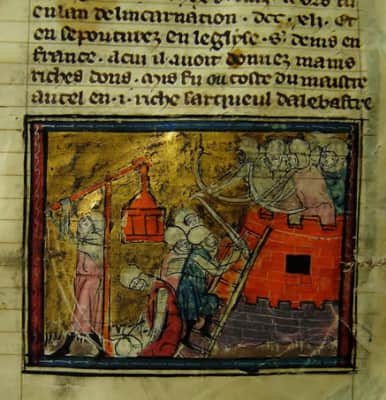 en lan delincarnation · dcc · xli · et
en sepouturez en leglyse · s · denis en
france · a cui il auoit donnez mains
riches dons · mis fu ou coste du maistre
autel en · i · riche sarqueul dalebastre